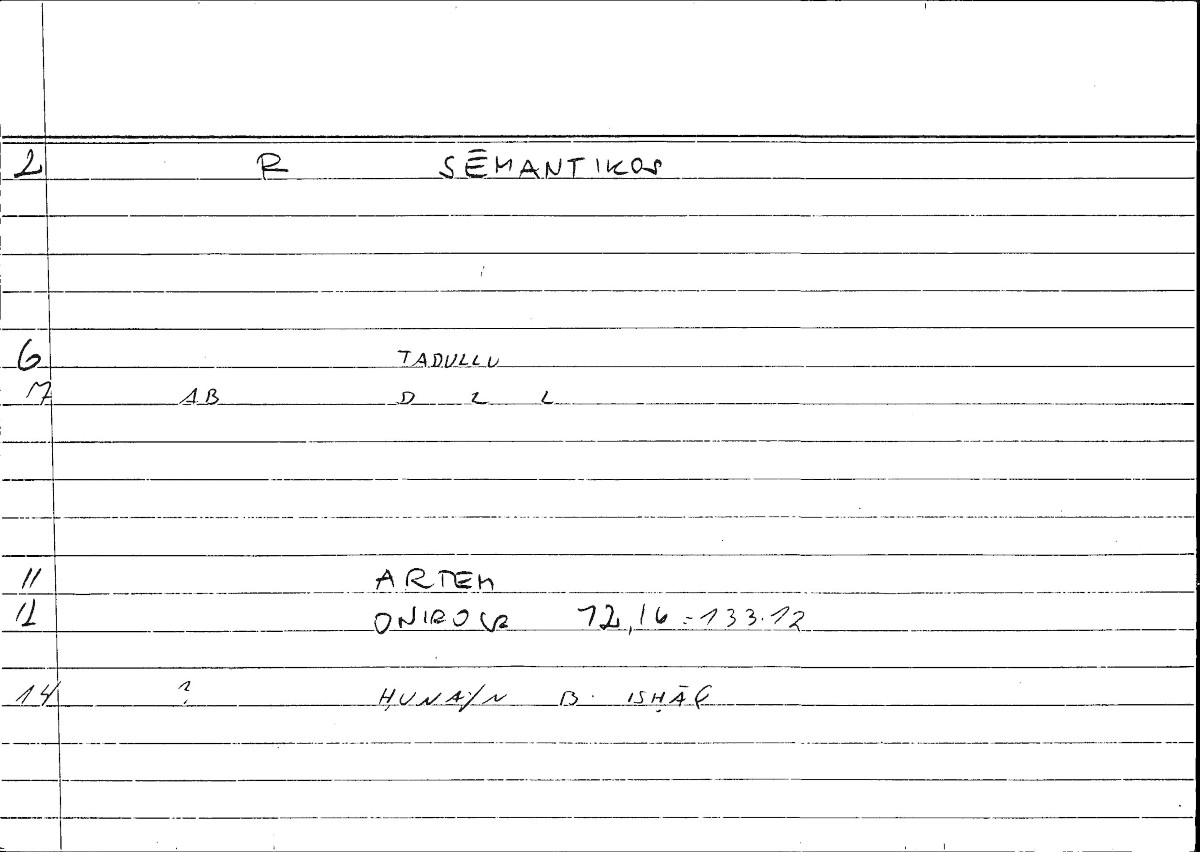 2 R SĒMANTIKOS
6 TADULLU
7 AB D L L
11 ARTEM
12 ONIROCR 72,16 = 133.12
14 ? ḤUNAIN B. ISḤĀQ